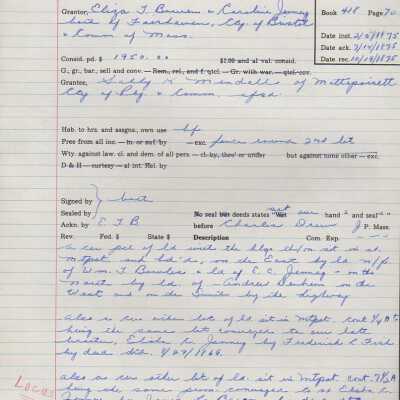 Grantor, Eliza T Bowen & Caroline Jenney
both of Fairhaven, Cty. of Bristol
& Comm of Mass.
Book 418 Page 70
Date inst. 2/5/1875
Date ack. 7/14/1875
Date rec. 10/19/1875
Consid. pd. $ 1950.00 $1.00 and al val. consid.
G., gr., bar., sell and conv. — Rem., rel., and f. qtcl. — Gr. with war. — qtcl. cov.
Grantee, Sally K. Mendall of Mattapoisett
Cty of Ply & Comm. afsd.
Hab. to hrs. and assgns., own use bf
Free from all inc. — m. or suf. by — exc. fence around 2nd lot
Wty. against law. cl. and dem. of all pers — cl. by, thro' or under but against none other — exc.
D & H — curtesy — al int. Rel. by
Signed by both
Sealed by No seal but deeds states "Wit set our hand s and seal s"
Ackn. by E. T. B. before Charles Drew J P. Mass.
Rev. Fed. $ State $ Description Com. Exp.
A cer pcl of ld with the blgs th/on sit in sd
Mtpst and bd'd, on the East by ld n/f
of Wm. T Bowles & ld of E. C. Jenney - on the
North by ld. of Andrew Denham on the
West and on the South by the highway
Also a cer other lot of ld sit in Mtpst cont. 1/4 A to
being the same lot conveyed to our late
brother, Elisha L Jenney by Frederick L Fish
by deed dtd. 1/27/1868.
also a cer other lot of ld. sit in Mtpst cont.
being the same prem conveyed to sd Elisha L
LOCUS